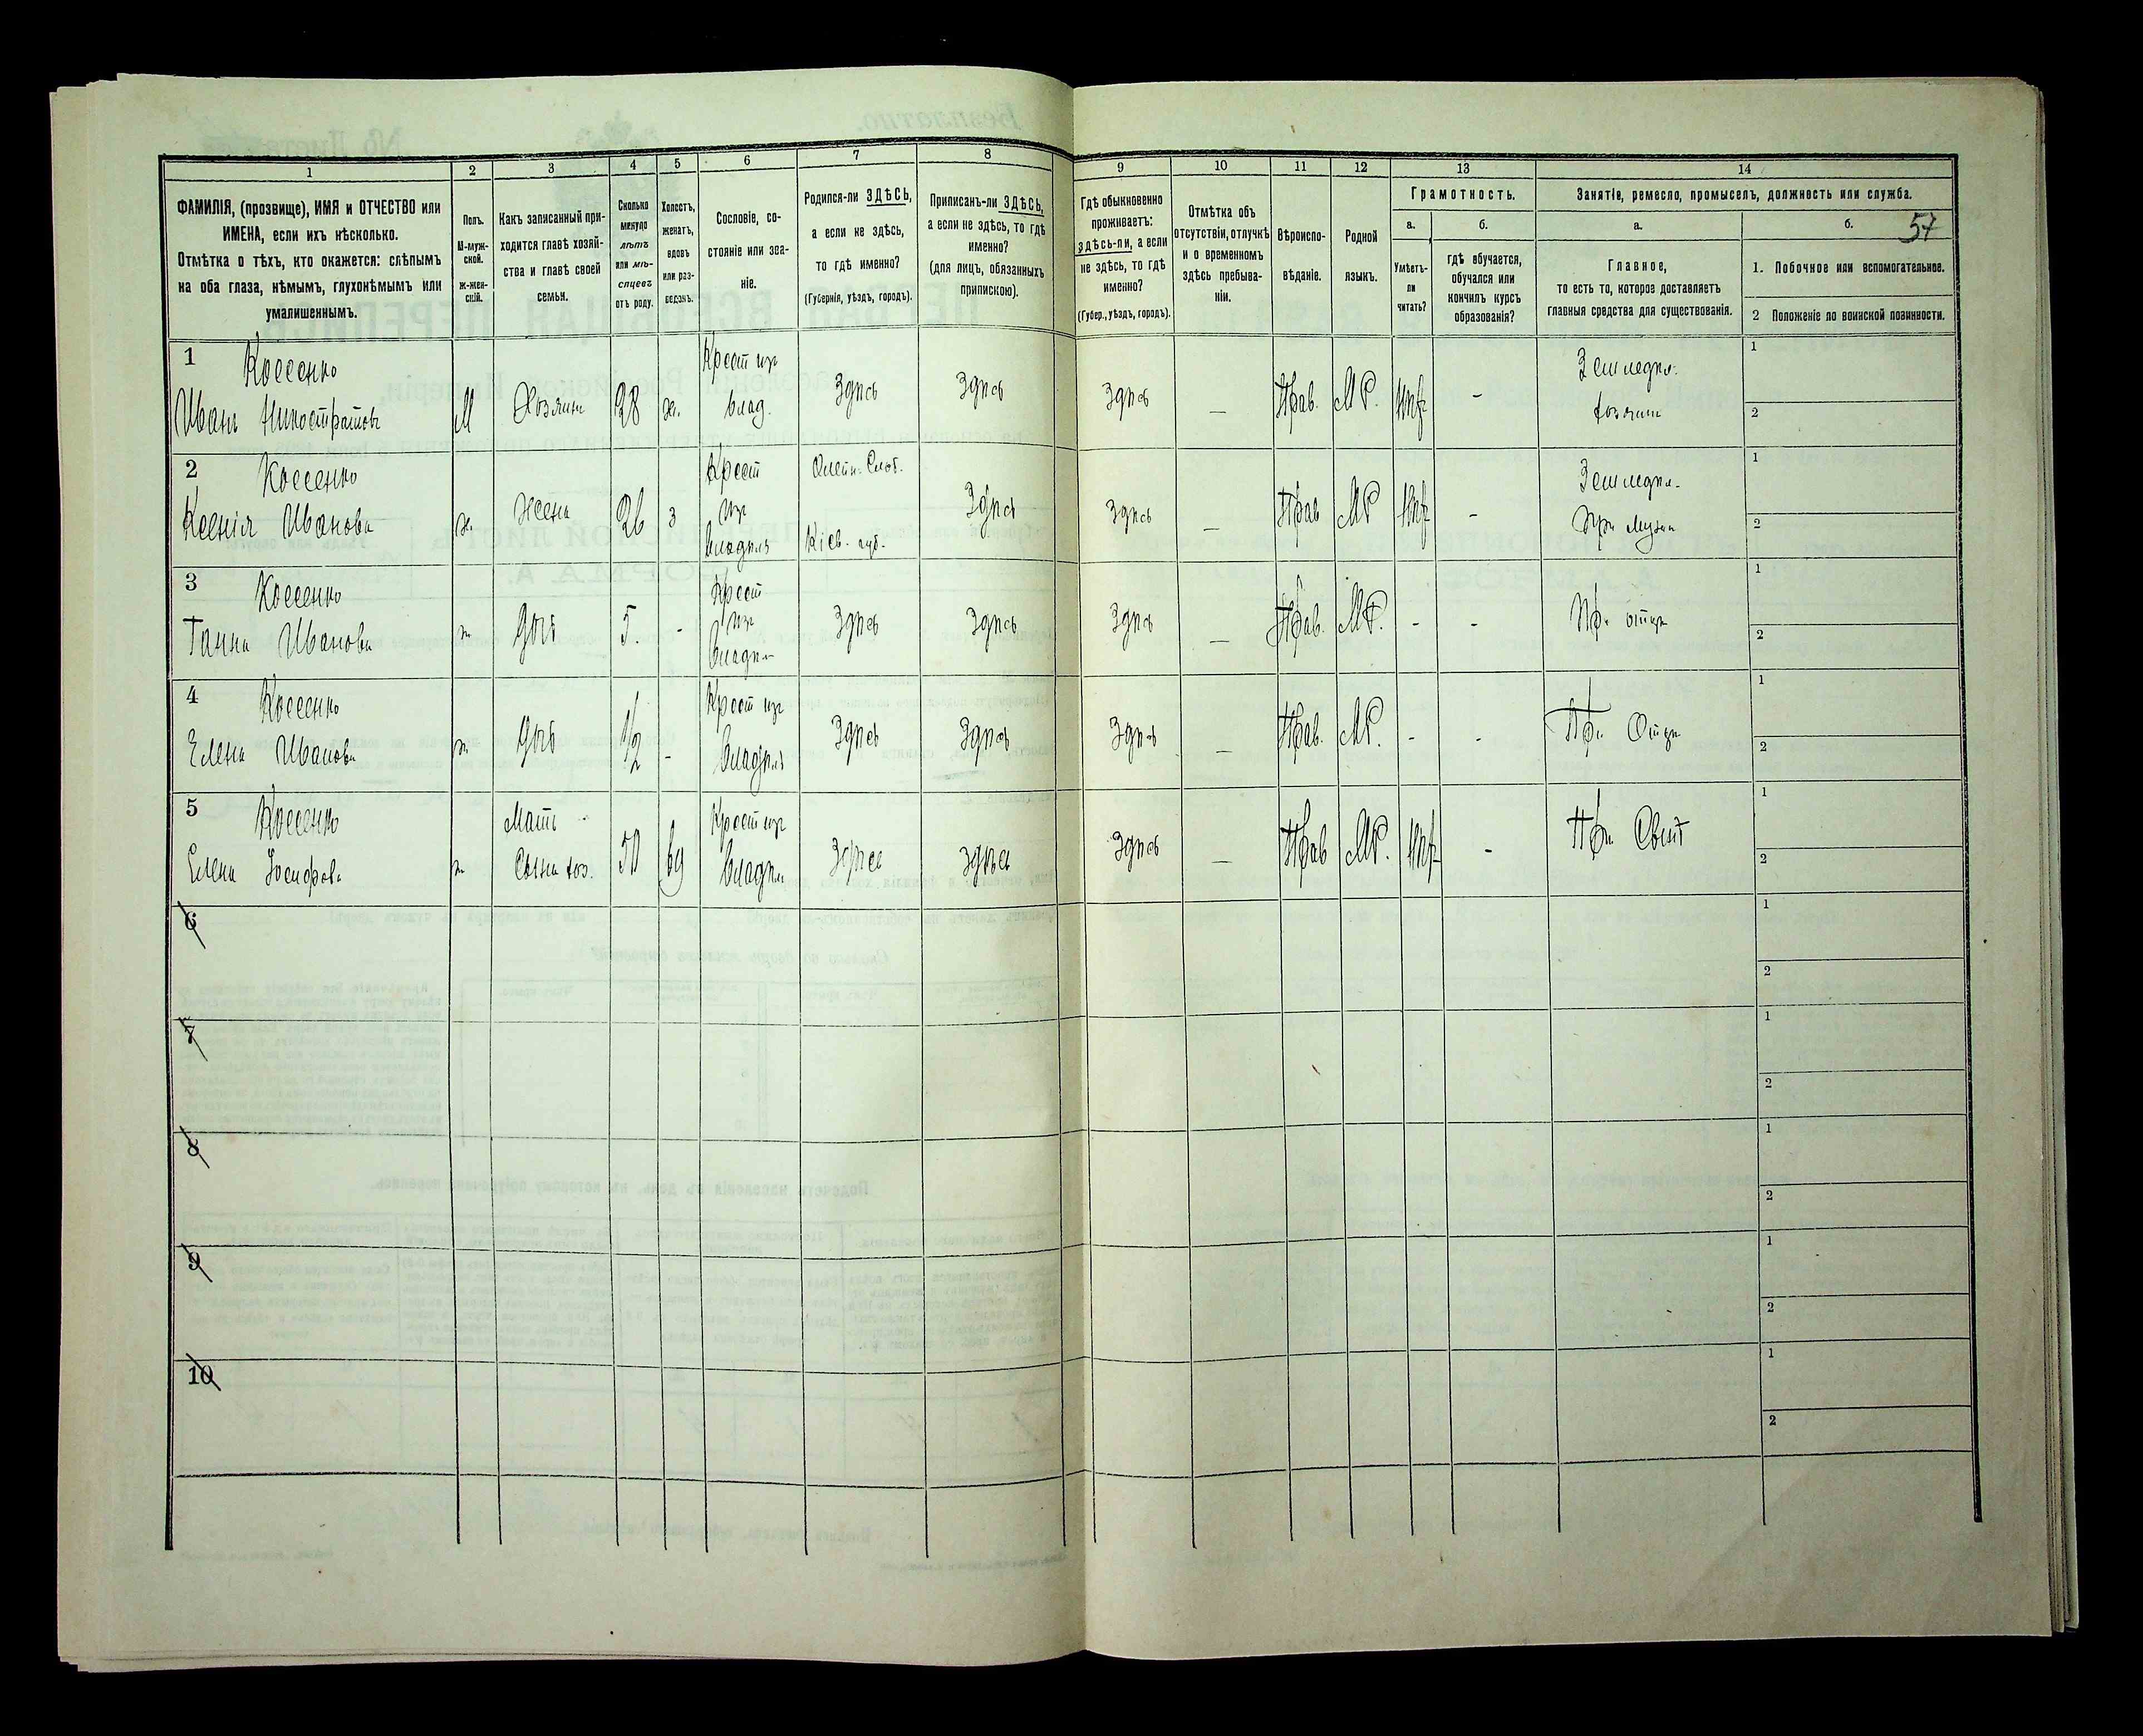 1 2 3 4 5 6 7 8 9 10 11 12 13 14
ФАМИЛІЯ, (прозвище), ИМЯ и ОТЧЕСТВО или
ИМЕНА, если ихъ нѣсколько.
Отмѣтка о тѣхъ, кто окажется: слѣпымъ
на оба глаза, нѣмымъ, глухонѣмымъ или
умалишеннымъ.
Полъ.
М-муж-
ской.
ж-жен-
скій.
Какъ записанный при-
ходится главѣ хозяй-
ства и главѣ своей
семьи.
Сколько
минуло
лѣтъ
или мѣ-
сяцевъ
отъ роду.
Холостъ,
женатъ,
вдовъ
или раз-
веденъ.
Сословіе, со-
стояніе или зва-
ніе.
Родился-ли ЗДѢСЬ,
а если не здѣсь,
то гдѣ именно?
(Губернія, уѣздъ, городъ).
Приписанъ-ли ЗДѢСЬ,
а если не здѣсь, то гдѣ
именно?
(для лицъ, обязанныхъ
припискою).
Гдѣ обыкновенно
проживаетъ:
здѣсь-ли, а если
не здѣсь, то гдѣ
именно?
(Губер., уѣздъ, городъ).
Отмѣтка объ
отсутствіи, отлучкѣ
и о временномъ
здѣсь пребыва-
ніи.
Вѣроиспо-
вѣданіе.
Родной
языкъ.
Грамотность.
а.
Умѣетъ-
ли
читать?
б.
гдѣ обучается,
обучался или
кончилъ курсъ
образованія?
Занятіе, ремесло, промыселъ, должность или служба.
а.
Главное,
то есть то, которое доставляетъ
главныя средства для существованія.
б.
57
1. Побочное или вспомогательное.
2 Положеніе по воинской повинности.
1 Косенко
Иванъ Никостратовъ
М Хозяинъ 28 ж. Крест изъ
влад. Здѣсь Здѣсь Здѣсь — Прав. МР. - Земледѣл.
хозяинъ
1
2
2 Косенко
Ксенія Иванова
ж. Жена 26 з Крест
изъ
владѣл Кіев. губ. Здѣсь Здѣсь — Прав МР - Земледѣл.
При мужѣ
1
2
3 Косенко
Ганна Иванова
ж дочь 5. - Крест
изъ
владѣл Здѣсь Здѣсь Здѣсь — Прав. МР. - - При отцѣ
1
2
4 Косенко
Елена Иванова
ж дочь 1/2 - Крест изъ
владѣл Здѣсь Здѣсь Здѣсь — Прав. МР. - - При Отцѣ
1
2
5 Косенко
Елена Іосифова
ж Мать
хоз. 50 вд Крест изъ
владѣл Здѣсь Здѣсь Здѣсь — Прав МР. - При
1
2
6
1
2
7
1
2
8
1
2
9
1
2
10
1
2